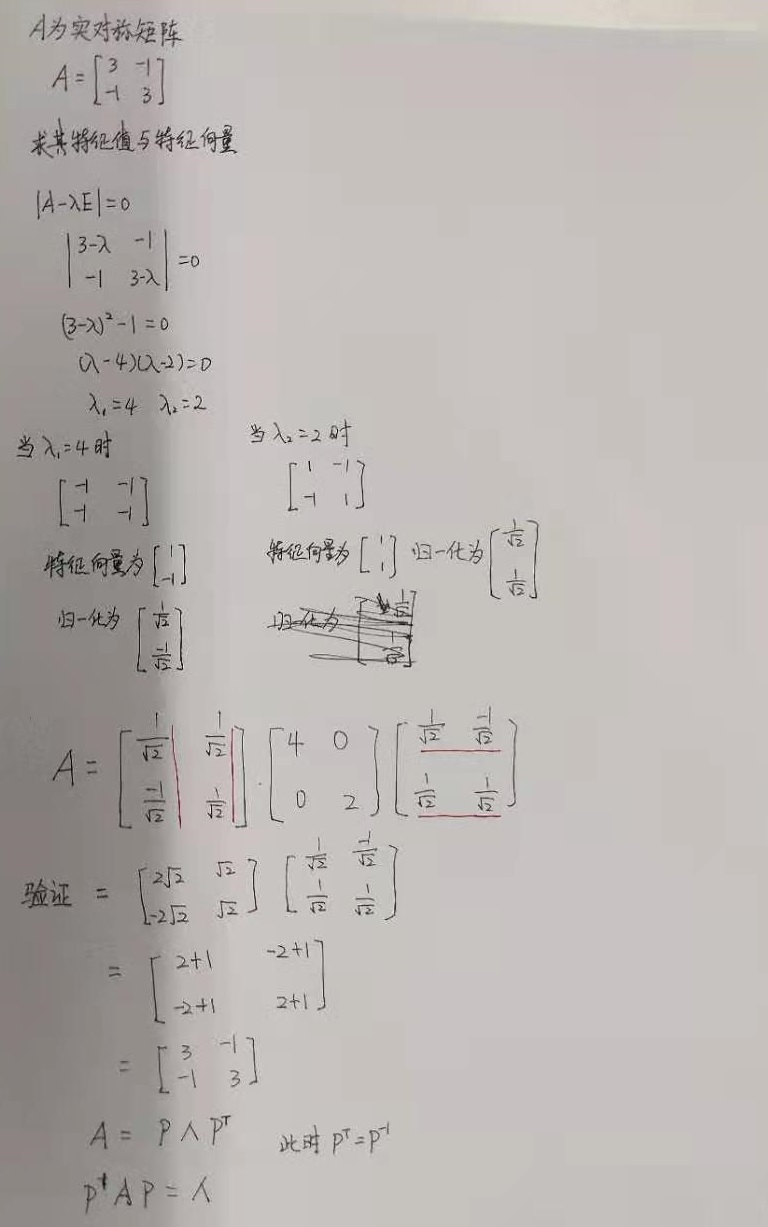 A为实对称矩阵
A = [3 -1; -1 3]
求其特征值与特征向量
|A-λE|=0
|3-λ -1; -1 3-λ| =0
(3-λ)²-1=0
(λ-4)(λ-2)=0
λ₁=4 λ₂=2
当λ₁=4时
[-1 -1; -1 -1]
特征向量为 [1; -1]
归一化为 [1/√2; -1/√2]
当λ₂=2时
[1 -1; -1 1]
特征向量为 [1; 1] 归一化为 [1/√2; 1/√2]
A = [1/√2 1/√2; -1/√2 1/√2] · [4 0; 0 2] [1/√2 -1/√2; 1/√2 1/√2]
验证 = [2√2 √2; -2√2 √2] [1/√2 -1/√2; 1/√2 1/√2]
= [2+1 -2+1; -2+1 2+1]
= [3 -1; -1 3]
A = P Λ Pᵀ 此时 Pᵀ=P⁻¹